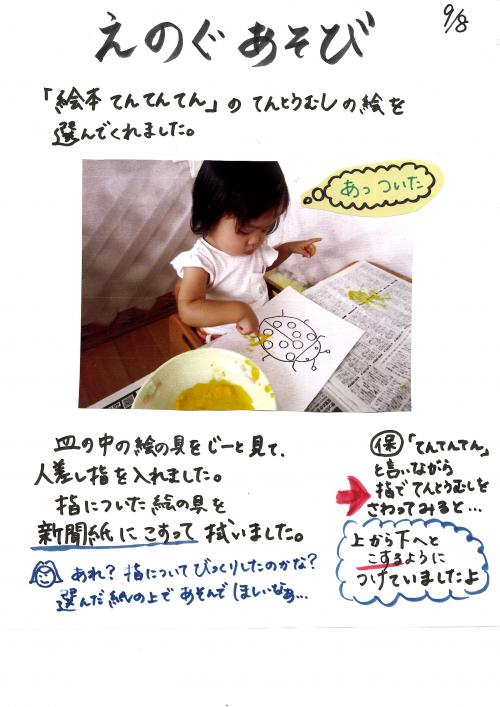 9/8
えのぐあそび
「絵本 てんてんてん」の てんとうむしの絵を
選んでくれました。
あっ ついた
皿の中の絵の具をじーと見て、
人差し指を入れました。
指についた絵の具を
新聞紙にこすって拭いました。
あれ?指についてびっくりしたのかな?
選んだ紙の上であそんでほしいなぁ…
保「てんてんてん」
と言いながら
指でてんとうむしを
さわってみると…
上から下へと
こするように
つけていましたよ